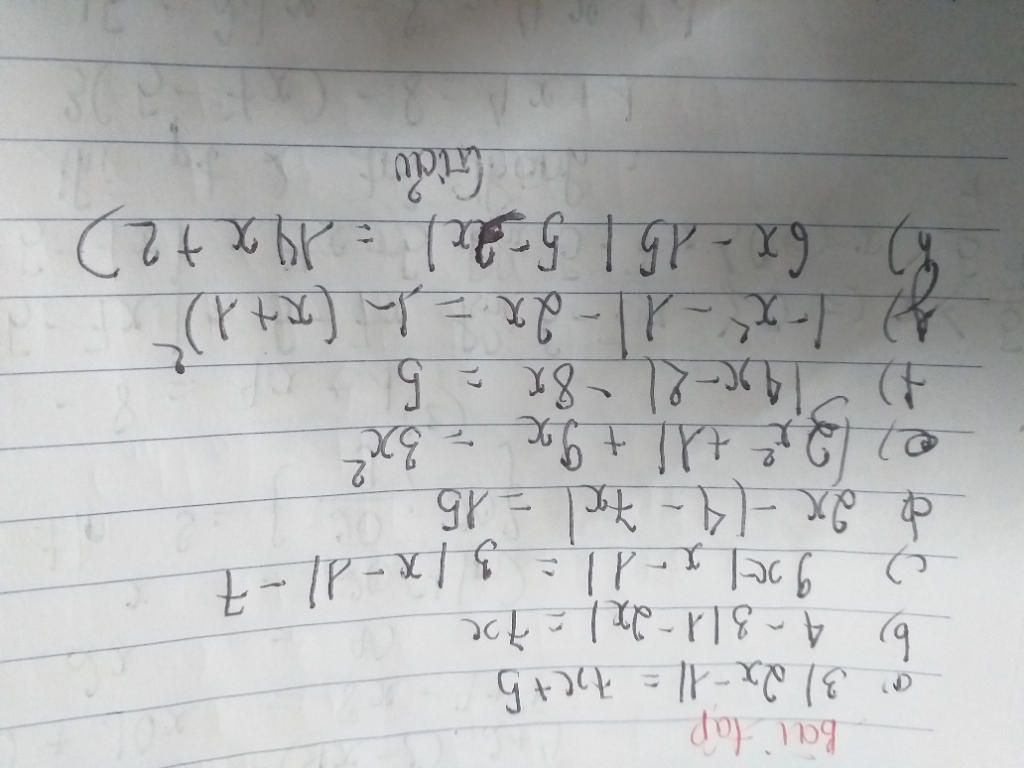 Bài tập
a) 3|2x-1| = 7x+5
b) 4 - 3|1 - 2x| = 7x
c) 9x|x - 1| = 3|x - 1| - 7
d 2x - |4 - 7x| = 15
e) |2x² + 1| + 9x = 3x²
f) |4x-2| - 8x = 5
g) |-x² - 1| - 2x = 1-(x+1)²
h) 6x - 15|5-2x| = 14x+2)
Giải